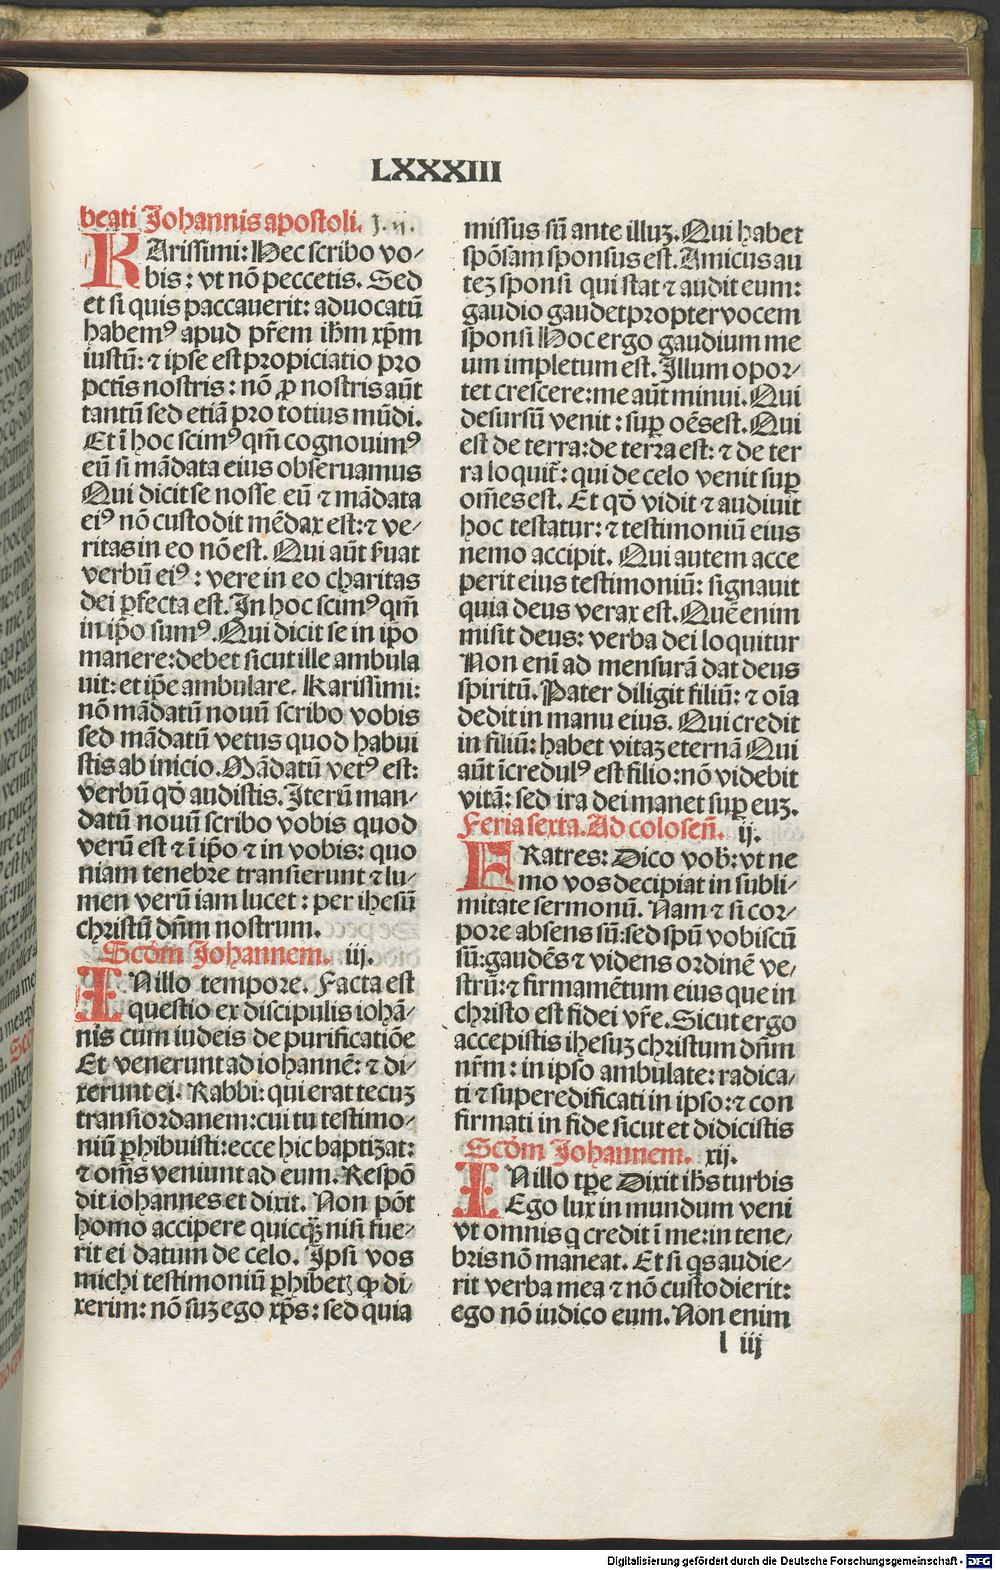 LXXXIII
beati Johannis apostoli. J. ij.
KArissimi: Hec scribo vo-
bis: vt nõ peccetis. Sed
et si quis paccauerit: aduocatũ
habemꝰ apud pr̃em ihm̃ xp̃m
iustũ: ⁊ ipse est propiciatio pro
pctĩs nostris: nõ ꝓ nostris aũt
tantũ sed etiã pro totius mũdi.
Et ĩ hoc scimꝰ qm̃ cognouimꝰ
eũ si mãdata eius obseruamus
Qui dicit se nosse eũ ⁊ mãdata
eiꝰ nõ custodit mẽdax est: ⁊ ve-
ritas in eo nõ est. Qui aũt ẜuat
verbũ eiꝰ: vere in eo charitas
dei ꝑfecta est. In hoc scimꝰ qm̃
in ip̃o sumꝰ. Qui dicit se in ip̃o
manere: debet sicut ille ambula
uit: et ip̃e ambulare. Karissimi:
nõ mãdatũ nouũ scribo vobis
sed mãdatũ vetus quod habui
stis ab inicio. Mãdatũ vetꝰ est:
verbũ qd̃ audistis. Iterũ man-
datũ nouũ scribo vobis quod
verũ est ⁊ ĩ ip̃o ⁊ in vobis: quo
niam tenebre transierunt ⁊ lu-
men verũ iam lucet: per ihesũ
christũ dñm nostrum.
Scd̃m Johannem. iij.
INillo tempore. Facta est
questio ex discipulis iohã-
nis cum iudeis de purificatiõe
Et venerunt ad iohannẽ: ⁊ di-
xerunt ei. Rabbi: qui erat tecuꝫ
trans iordanem: cui tu testimo-
niũ ꝑhibuisti: ecce hic baptizat:
⁊ om̃s veniunt ad eum. Respõ
dit iohannes et dixit. Non põt
homo accipere quicqꝫ̃ nisi fue-
rit ei datum de celo. Ipsi vos
michi testimoniũ ꝑhibetꝭ ꝙ di-
xerim: nõ suꝫ ego xp̃s: sed quia
missus sũ ante illuꝫ. Qui habet
spõsam sponsus est. Amicus au
teꝫ sponsi qui stat ⁊ audit eum:
gaudio gaudet propter vocem
sponsi Hoc ergo gaudium me
um impletum est. Illum opor-
tet crescere: me aũt minui. Qui
desursũ venit: suꝑ oẽs est. Qui
est de terra: de terra est: ⁊ de ter
ra loquit̃: qui de celo venit suꝑ
om̃es est. Et qd̃ vidit ⁊ audiuit
hoc testatur: ⁊ testimoniũ eius
nemo accipit. Qui autem acce
perit eius testimoniũ: signauit
quia deus verax est. Quẽ enim
misit deus: verba dei loquitur
Non enĩ ad mensurã dat deus
spiritũ. Pater diligit filiũ: ⁊ oĩa
dedit in manu eius. Qui credit
in filiũ: habet vitaꝫ eternã Qui
aũt ĩcredulꝰ est filio: nõ videbit
vitã: sed ira dei manet suꝑ euꝫ.
Feria sexta. Ad colosen̄. ij.
FRatres: Dico vob̃: vt ne
mo vos decipiat in subli-
mitate sermonũ. Nam ⁊ si cor-
pore absens sũ: sed spũ vobiscũ
sũ: gaudẽs ⁊ videns ordinẽ ve-
strũ: ⁊ firmamẽtum eius que in
christo est fidei vr̃e. Sicut ergo
accepistis ihesuꝫ christum dñm
nr̃m: in ipso ambulate: radica-
ti ⁊ superedificati in ipso: ⁊ con
firmati in fide sicut et didicistis
Scd̃m Johannem. xij.
INillo tp̃e Dixit ihs̃ turbis
Ego lux in mundum veni
vt omnis q credit ĩ me: in tene-
bris nõ maneat. Et si qs audie-
rit verba mea ⁊ nõ custodierit:
ego nõ iudico eum. Non enim
l iij
Digitalisierung gefördert durch die Deutsche Forschungsgemeinschaft - DFG